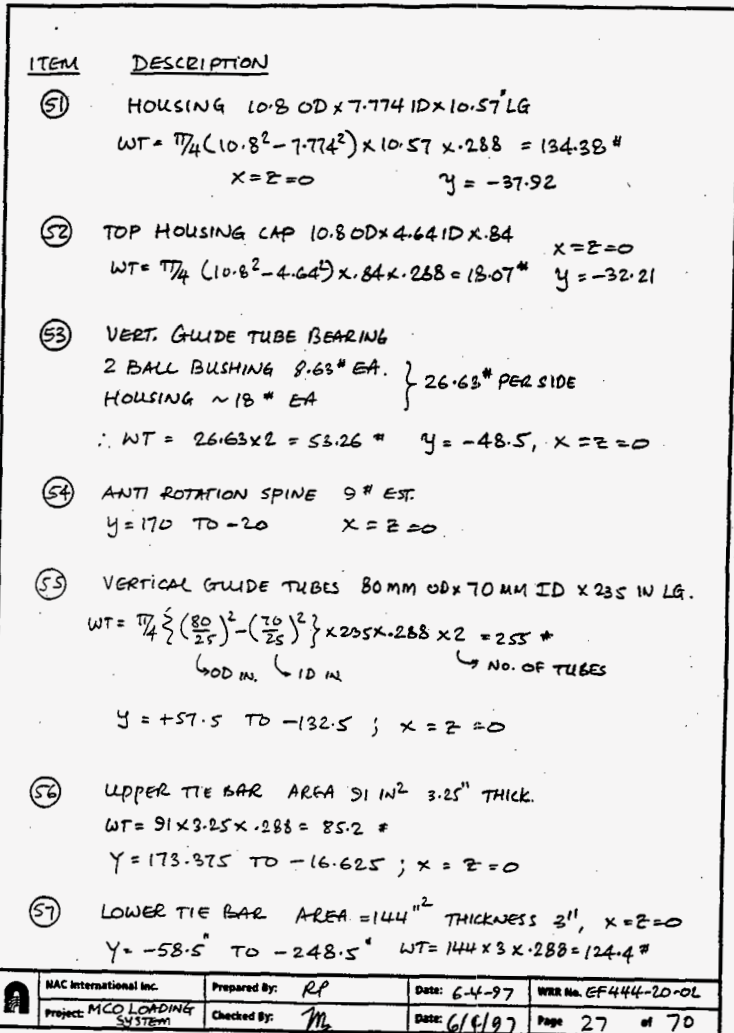 ITEM DESCRIPTION
51 HOUSING 10.8 OD x 7.774 ID x 10.57" LG
WT = π/4 (10.8² - 7.774²) x 10.57 x .288 = 134.38 #
x = z = 0 y = -37.92
52 TOP HOUSING CAP 10.8 OD x 4.64 ID x .84
x = z = 0
WT = π/4 (10.8² - 4.64²) x .84 x .288 = 18.07 # y = -32.21
53 VERT. GUIDE TUBE BEARING
2 BALL BUSHING 8.63 # EA. } 26.63 # PER SIDE
HOUSING ~ 18 # EA
∴ WT = 26.63 x 2 = 53.26 # y = -48.5, x = z = 0
54 ANTI ROTATION SPINE 9 # EST.
y = 170 TO -20 x = z = 0.
55 VERTICAL GUIDE TUBES 80 mm OD x 70 MM ID x 235 IN LG.
WT = π/4 {(80/25)² - (70/25)²} x 235 x .288 x 2 = 255 #
↳ OD IN. ↳ ID IN ↳ NO. OF TUBES
y = +57.5 TO -132.5 ; x = z = 0
56 UPPER TIE BAR AREA 91 IN² 3.25" THICK.
WT = 91 x 3.25 x .288 = 85.2 #
Y = 173.375 TO -16.625 ; x = z = 0
57 LOWER TIE BAR AREA = 144"² THICKNESS 3", x = z = 0
Y = -58.5" TO -248.5" WT = 144 x 3 x .288 = 124.4 #
NAC International Inc. Prepared By: RP Date: 6-4-97 WRR No. EF444-20-02
Project: MCO LOADING SYSTEM Checked By: Date: 6/4/97 Page 27 of 70